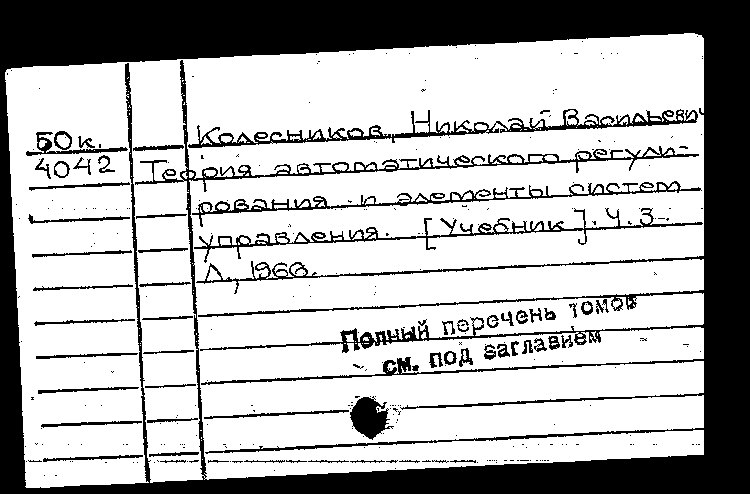 50к. Колесников, Николай Васильевич
4042 Теория автоматического регули-
рования и элементы систем
управления. [Учебник]. Ч. 3-
Л., 1966.
Полный перечень томов
см. под заглавием